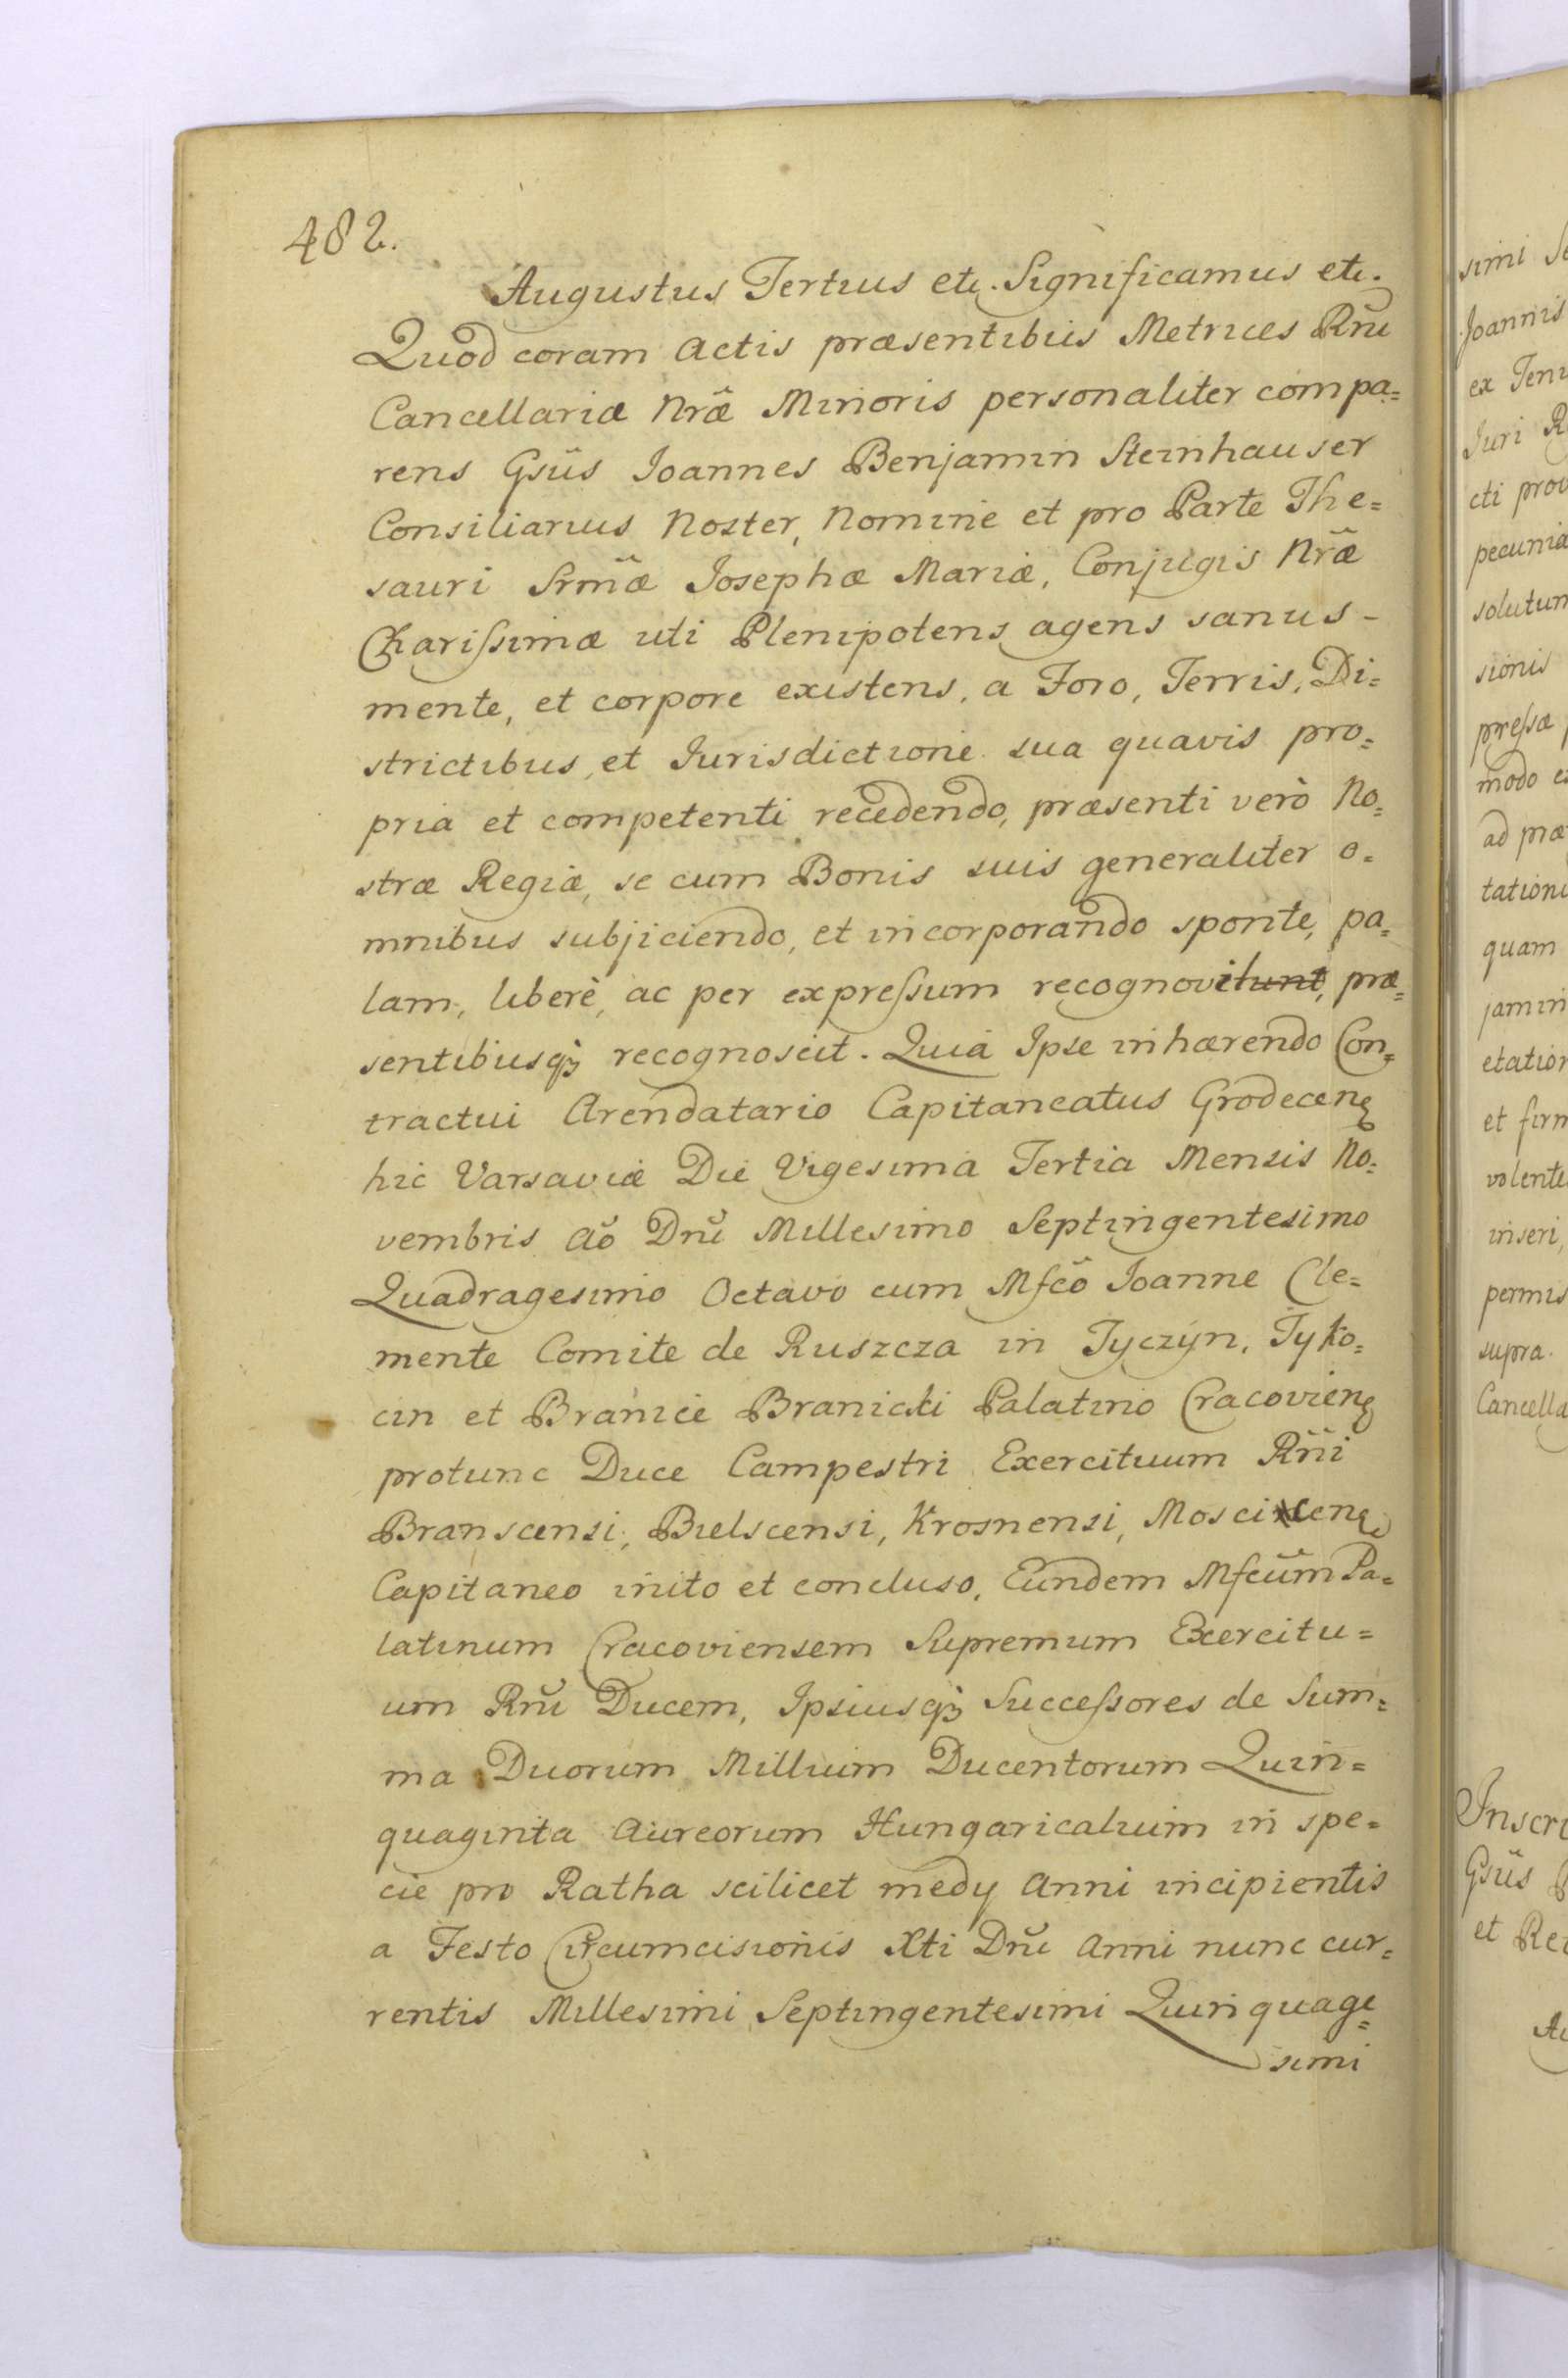 482.
Augustus Tertius etc. Significamus etc.
Quod coram Actis præsentibus Metrices Rñi
Cancellariæ Nræ̃ Minoris personaliter compa=
rens Gsũs Joannes Benjamin Steinhauser
Consiliarius Noster, Nomine et pro Parte The=
sauri Srmæ̃ Josephæ Mariæ, Conjugis Nræ̃
Charissimæ uti Plenipotens agens sanus-
mente, et corpore existens, a Foro, Terris, Di=
strictibus, et Jurisdictione sua quavis pro=
pria et competenti recedendo, præsenti verò No=
stræ Regiæ, se cum Bonis suis generaliter o=
mnibus subjiciendo, et incorporando sponte, pa=
lam, liberè, ac per expressum recognovit, præ=
sentibusq3 recognoscit. Quia Ipse inhærendo Con=
tractui Arendatario Capitaneatus Grodecens
hic Varsaviæ Die Vigesima Tertia Mensis No=
vembris Aõ Dñi Millesimo Septingentesimo
Quadragesimo Octavo cum Mfcõ Joanne Cle=
mente Comite de Ruszcza in Tyczyn, Tyko=
cin et Branice Branicki Palatino Cracoviens
protunc Duce Campestri Exercituum Rñi
Branscensi, Bielscensi, Krosnensi, Moscicens
Capitaneo inito et concluso, Eundem Mfcũm Pa=
latinum Cracoviensem Supremum Exercitu=
um Rñi Ducem, Ipsiusq3 Successores de Sum=
ma Duorum Millium Ducentorum Quin=
quaginta Aureorum Hungaricalium in spe=
cie pro Ratha scilicet medy Anni incipientis
a Festo Circumcisionis Xti Dñi Anni nunc cur=
rentis Millesimi Septingentesimi Quinquage=
simi
simi
Joannis
ex
Juri
cti
pecunia
sionis
pressæ
modo
ad
quam
et
volente
inseri,
supra.
Gsũs
et